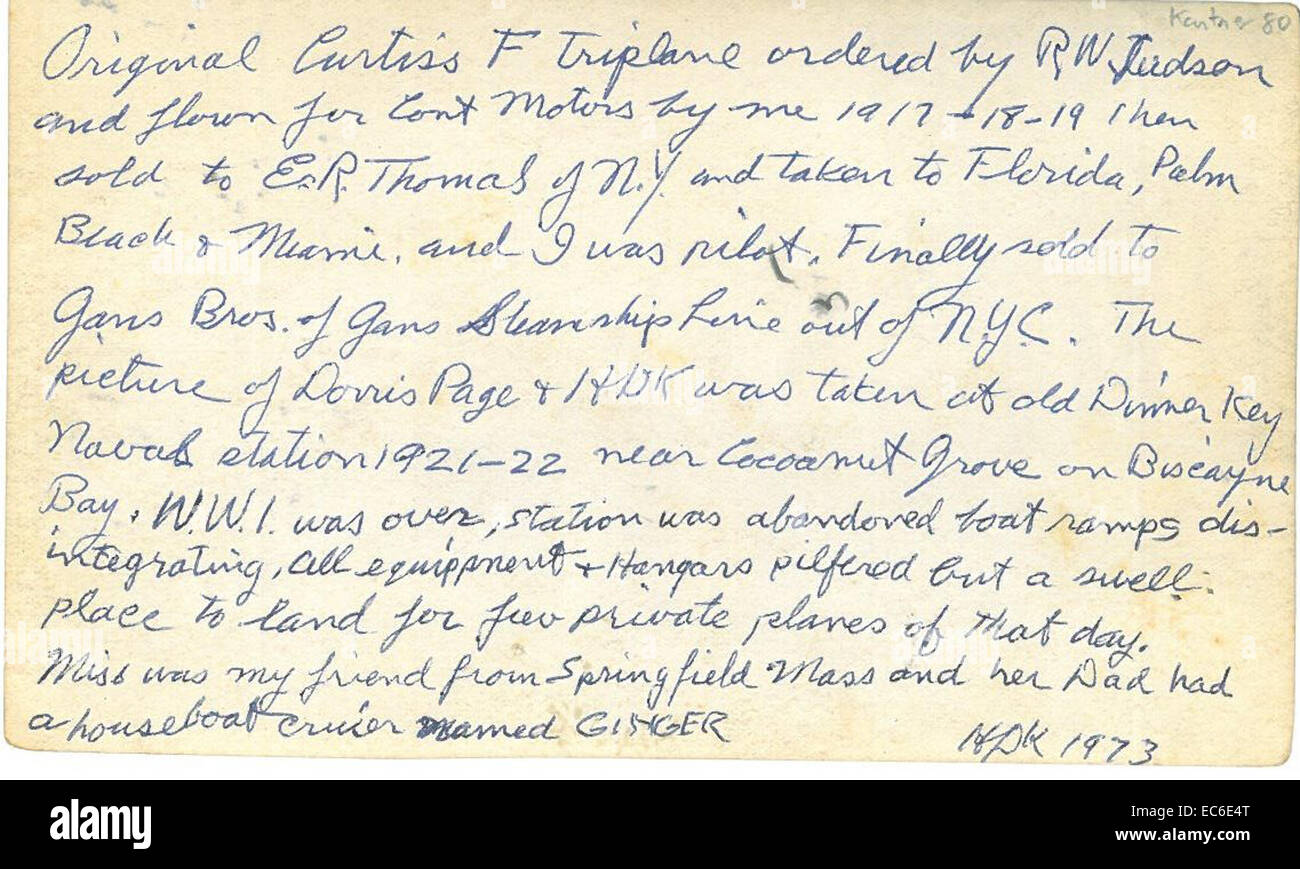 Kantner 80
Original Curtiss F Triplane ordered by R.W. Judson
and flown for Cont Motors by me 1917-18-19 Then
sold to E.R. Thomas of N.Y. and taken to Florida, Palm
Beach & Miami. and I was pilot. Finally sold to
Gans Bros. of Gans Steamship Line out of N.Y.C. The
picture of Dorris Page & HDK was taken at old Dinner Key
Naval station 1921-22 near Cocoanut Grove on Biscayne
Bay. W.W.1. was over, station was abandoned boat ramps dis-
integrating, all equippment & Hangars pilfered but a swell
place to land for few private planes of that day.
Miss was my friend from Springfield Mass and her Dad had
a houseboat cruier named GINGER
HDK 1973
alamy
a alamy stock photo
EC6E4T
www.alamy.com